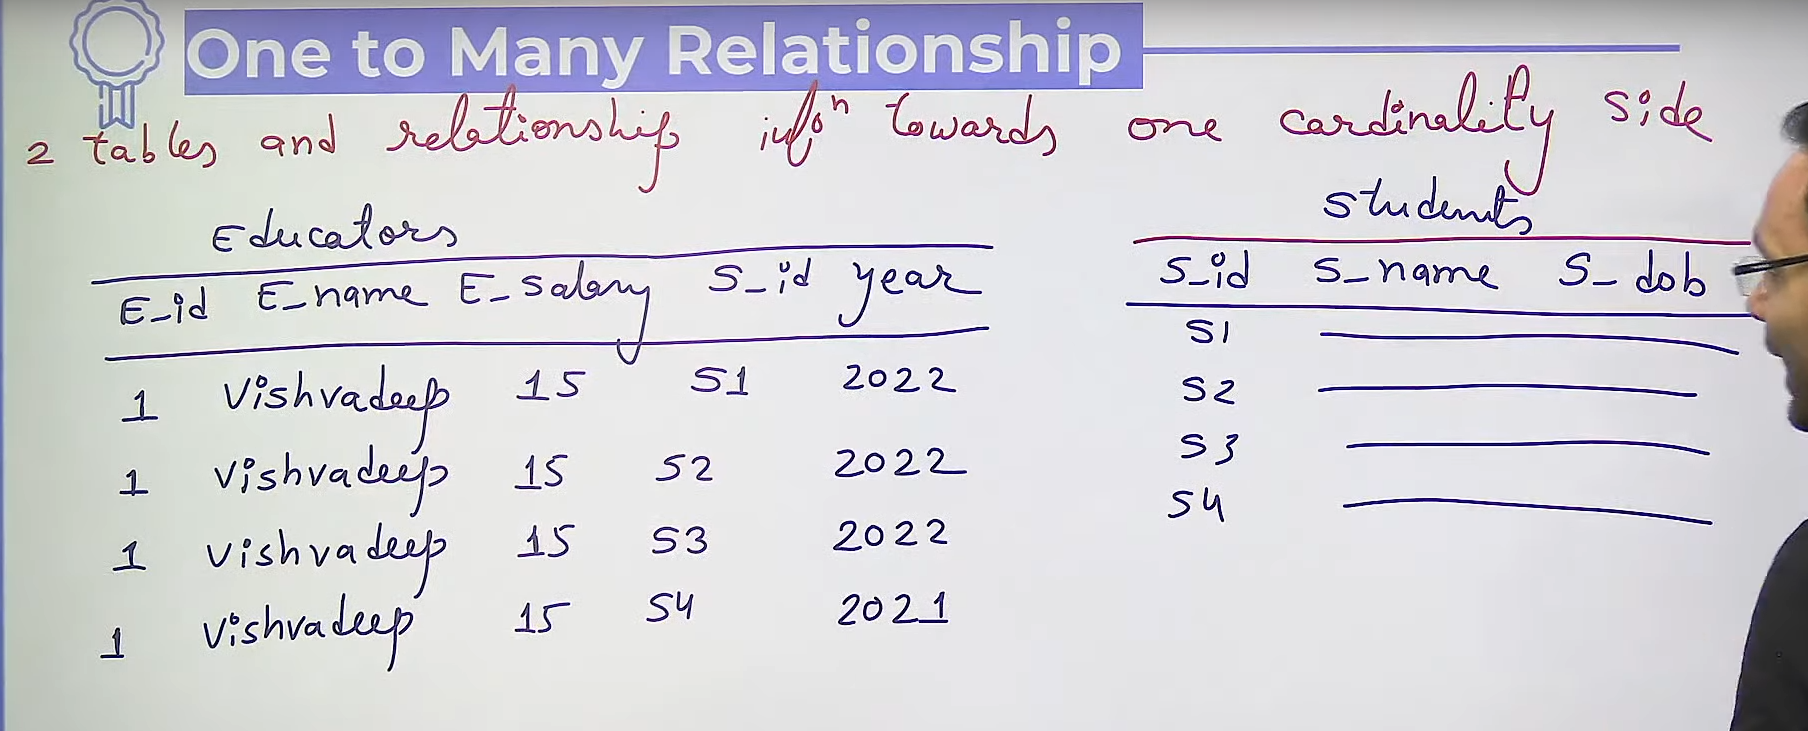 One to Many Relationship
2 tables and relationship infoⁿ towards one cardinality side
Educators
E_id E_name E_salary S_id year
1 Vishvadeep 15 S1 2022
1 Vishvadeep 15 S2 2022
1 Vishvadeep 15 S3 2022
1 Vishvadeep 15 S4 2021
Students
S_id S_name S_dob
S1
S2
S3
S4